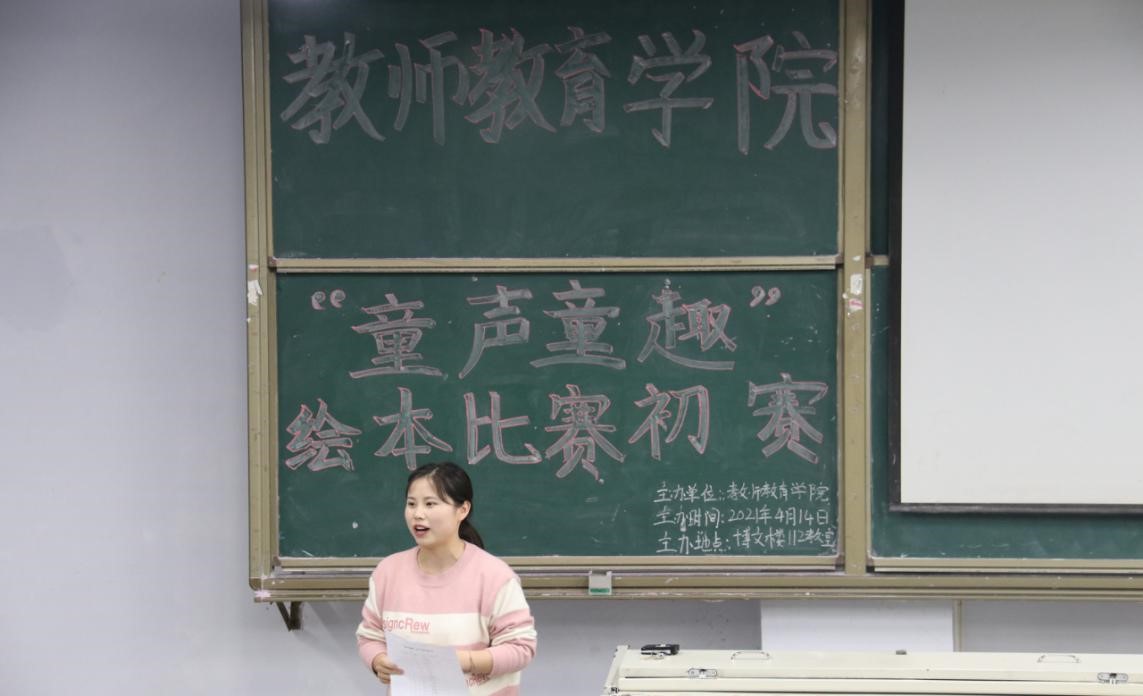 教师教育学院
“童声童趣”
绘本比赛初赛
主办单位:教师教育学院
主办时间:2021年4月14日
主办地点:博文楼112教室
signcRew